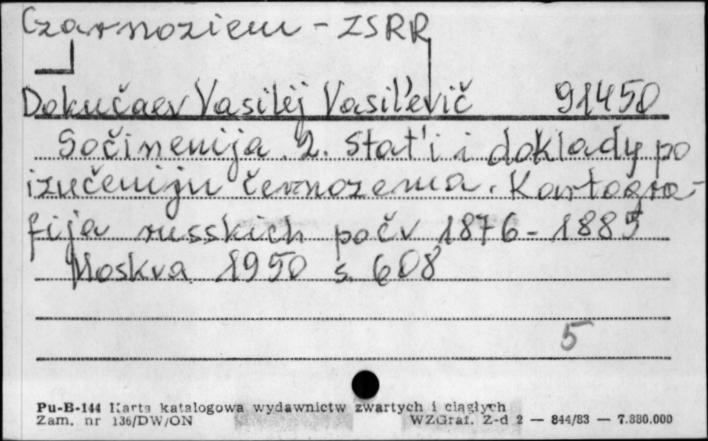 Czarnoziem - ZSRR
Dokučaev Vasilėj Vasil'evič 91450
Sočinenija. 2. Stat'i i doklady po
izučeniju černozema. Kartogra-
fija russkich počv 1876-1885
Moskva 1950 s. 608
5
Pu-B-144 Karta katalogowa wydawnictw zwartych i ciągłych
Zam. nr 136/DW/ON WZGraf. Z-d 2 — 844/83 — 7.880.000